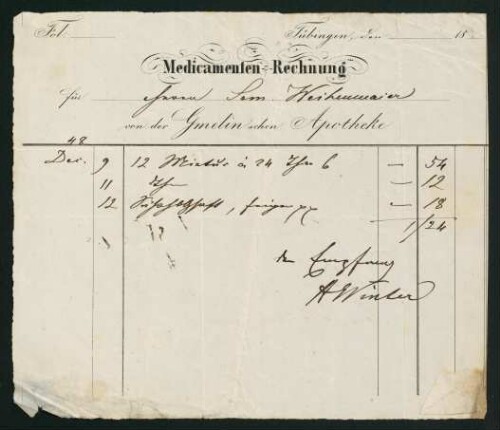 Fol.
Tübingen, den 18
Medicamenten-Rechnung
für Herrn Sem. Weihenmaier
von der Gmelin'schen Apotheke
48
Dec. 9 12 Mixtur à 24 6 — 54
11 — 12
12 — 18
1/24
Empfang
AWinter